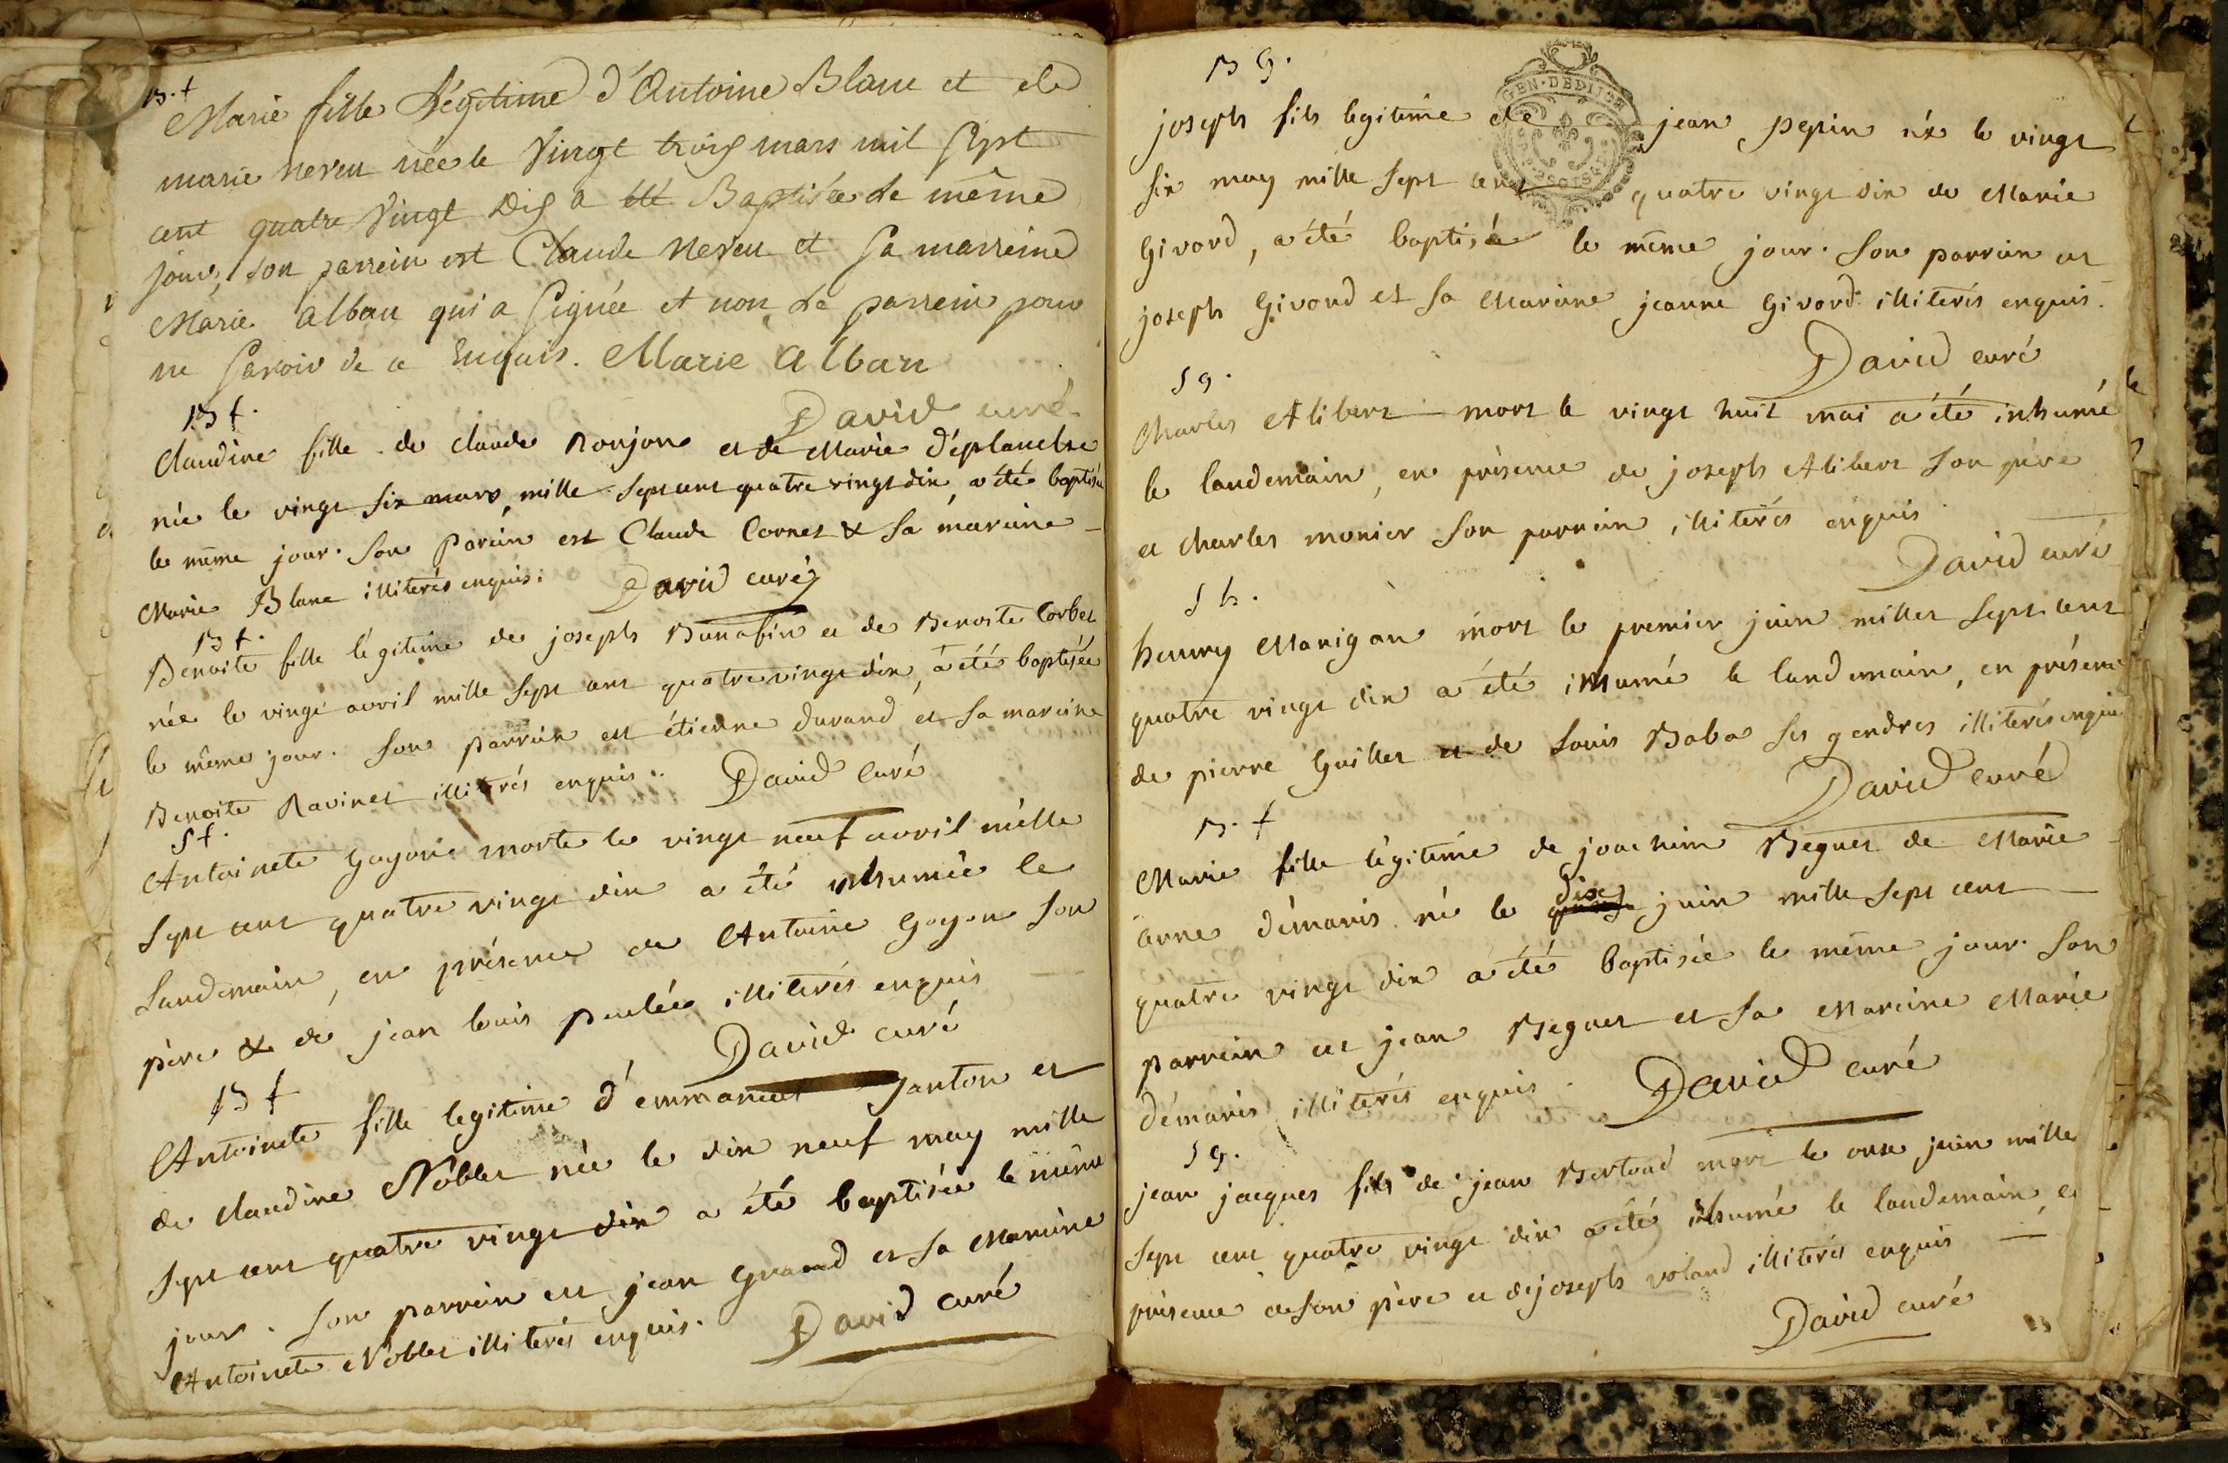 B. f
Marie fille Légitime d'Antoine Blanc et de
marie neveu née le Vingt trois mars mil Sept
cent quatre Vingt Dix a été Baptisée le même
jour, son parrein est Claude neveu et Sa marreine
Marie alban qui a Signée et non Le parrein pour
ne Savoir de ce Enquis. Marie Alban
David curé
B f.
Claudine fille de claude Ronjon et de Marie d'éplanche
née le vingt six mars mille Sept cent quatre vingt dix, a été baptisée
le même jour. Son parein est Claude Cornet & Sa mareine
Marie Blanc illiterés enquis. David curé
B f.
Bénoite fille légitime de joseph Bonafin et de Benoite Corbet
née le vingt avril mille Sept cent quatre vingt dix, a été baptisée
le même jour. Son parrein est étienne durand et Sa mareine
Benoite Ravinet illiterés enquis. David curé
S f.
Antoinete Goyon morte le vingt neuf avril mille
Sept cent quatre vingt dix a été inhumée le
Landemain, en présence de Antoine Goyon Son
père & de jean louis illiterés enquis
David curé
B f
Antoinete fille legitime d'emmanuel Janton et
de claudine Noblet née le dix neuf may mille
Sept cent quatre vingt dix a été baptisée le même
jour. Son parrein est jean Grand et Sa Mareine
Antoinete Noblet illiterés enquis. David curé
B G.
GEN. DE DIJON
joseph fils legitime de jean pepin né le vingt
six may mille Sept cent quatre vingt dix de Marie
Givord, a été baptisé le même jour. Son parrein est
joseph Givord et Sa Mareine jeanne Givord illiterés enquis.
David curé
S g.
Charles Alibert mort le vingt huit mai a été inhumé
le landemain, en présence de joseph Alibert Son père
et charles monier Son parrein illiterés enquis
David curé
S h.
henry Marigan mort le premier juin mille Sept cent
quatre vingt dix a été inhumé le landemain, en présence
de pierre Guillet et de Louis Baba Ses gendres illiterés enquis
David curé
B. f
Marie fille légitime de joachim Beguet de Marie
anne démaris né le dix juin mille Sept cent
quatre vingt dix a été baptisée le même jour. Son
parrein est jean Beguet et Sa Mareine Marie
démaris illiterés enquis. David curé
S g.
jean jacques fils de jean Bertoud mort le onze juin mille
Sept cent quatre vingt dix a été inhumé le landemain en
présence de Son père et de joseph voland illiterés enquis
David curé